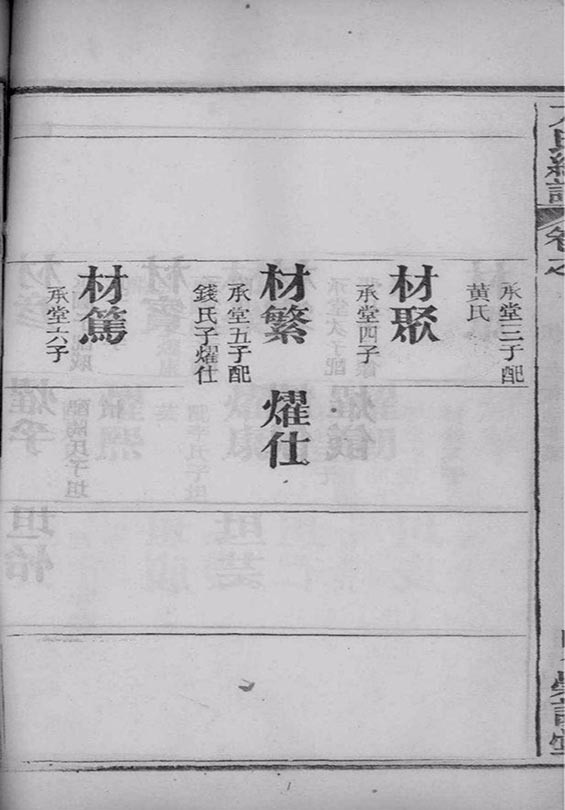 承堂三子配
黄氏
材聚
承堂四子
材繁
承堂五子配
錢氏子燿仕
燿仕
材篤
承堂六子